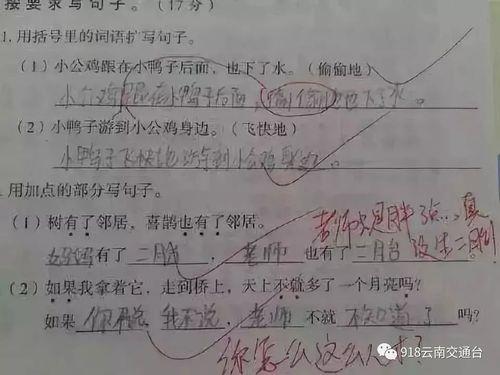 按要求写句子。(17分)
1. 用括号里的词语扩写句子。
(1) 小公鸡跟在小鸭子后面,也下了水。(偷偷地)
小公鸡跟在小鸭子后面,偷偷地也下了水。
(2) 小鸭子游到小公鸡身边。(飞快地)
小鸭子飞快地游到小公鸡身边。
用加点的部分写句子。
(1) 树有了邻居,喜鹊也有了邻居。
妈妈有了二胎,老师也有了二胎。
老师只是胖了点…真没生二胎!
(2) 如果我拿着它,走到桥上,天上不就多了一个月亮吗?
如果你不说我不说,老师不就不知道了吗?
你怎么这么人才?
918云南交通台